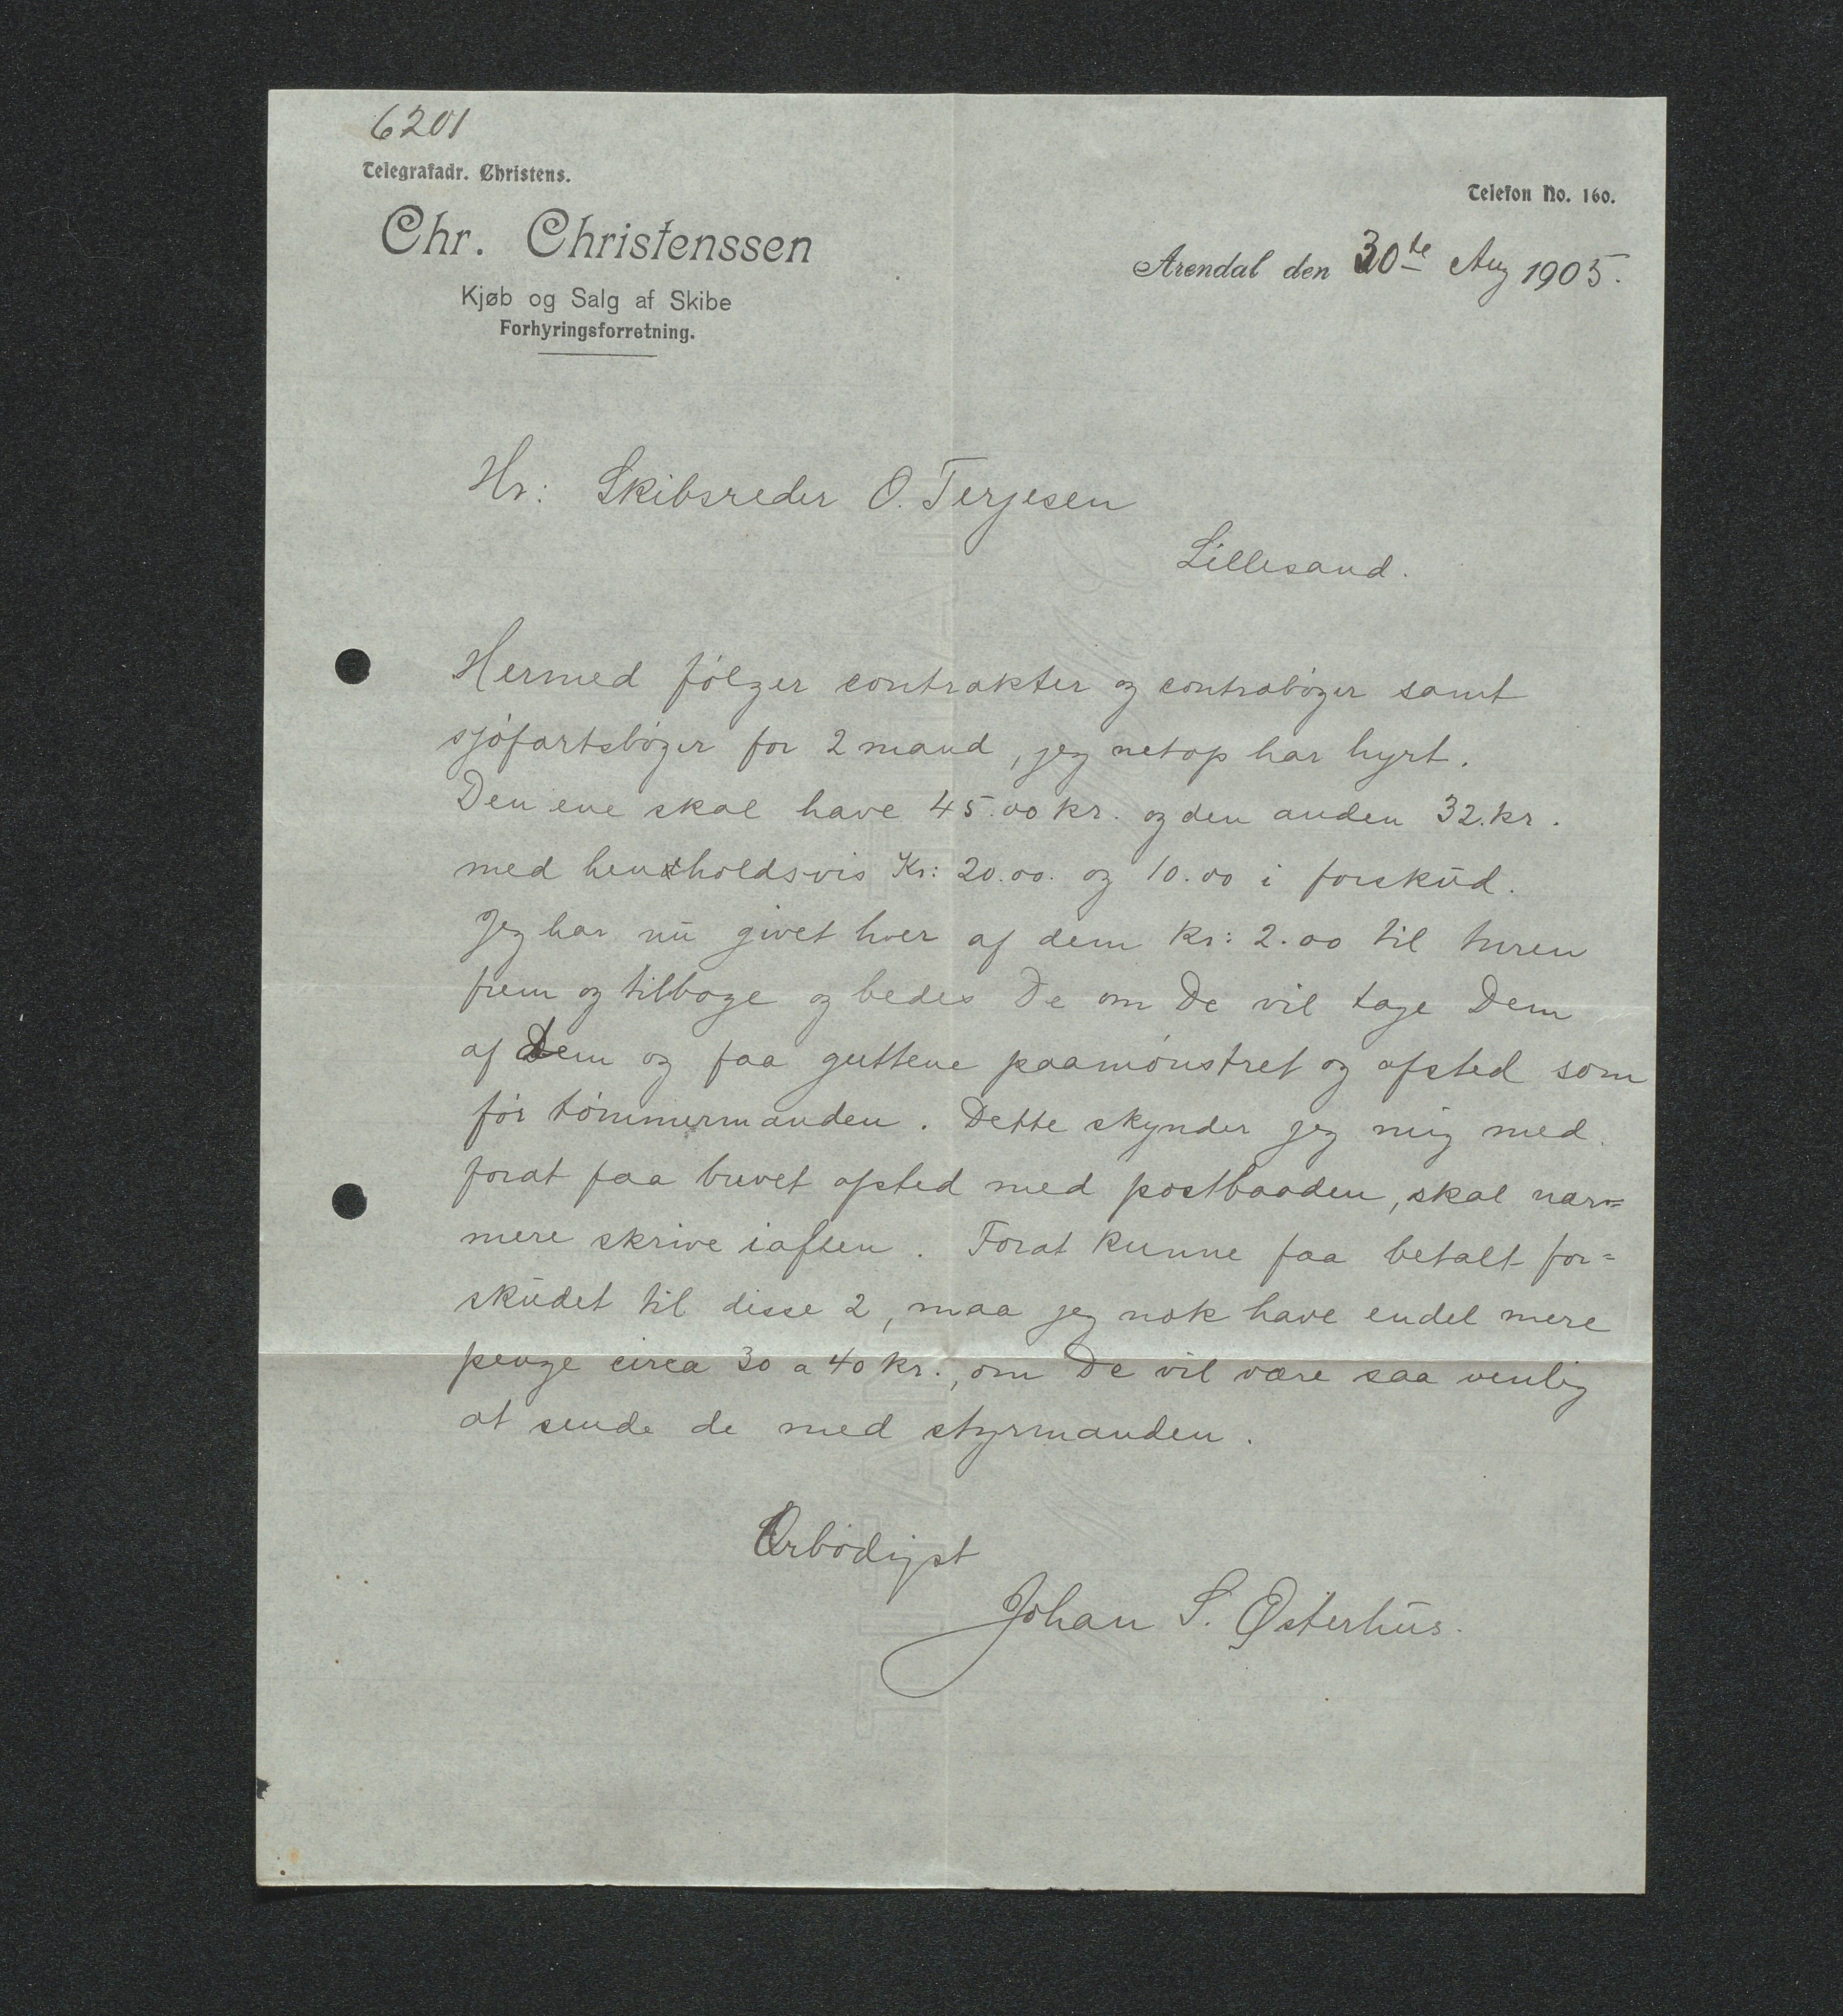 6201
Telegrafadr. Christens.
Telefon No. 160.
Chr. Christenssen
Kjøb og Salg af Skibe
Forhyringsforretning.
Arendal den 30te Aug 1905.
Hr: Skibsreder O. Terjesen
Lillesand.
Hermed følger contrakter og contrabøger samt
sjøfartsbøger for 2 mand, jeg netop har hyrt.
Den ene skal have 45.00 kr. og den anden 32. kr.
med henholdsvis Kr: 20.00. og 10.00 i forskud.
Jeg har nu givet hver af dem kr: 2.00 til turen
frem og tilbage og bedes De om De vil tage Dem
af dem og faa guttene paamønstret og afsted som
før tømmermanden. Dette skynder jeg mig med.
forat faa brevet afsted med postbaaden, skal nær=
mere skrive iaften. Forat kunne faa betalt for=
skudet til disse 2, maa jeg nok have endel mere
penge circa 30 a 40 kr., om De vil være saa venlig
at sende de med styrmanden.
Ærbødigst
Johan S. Østerhus.